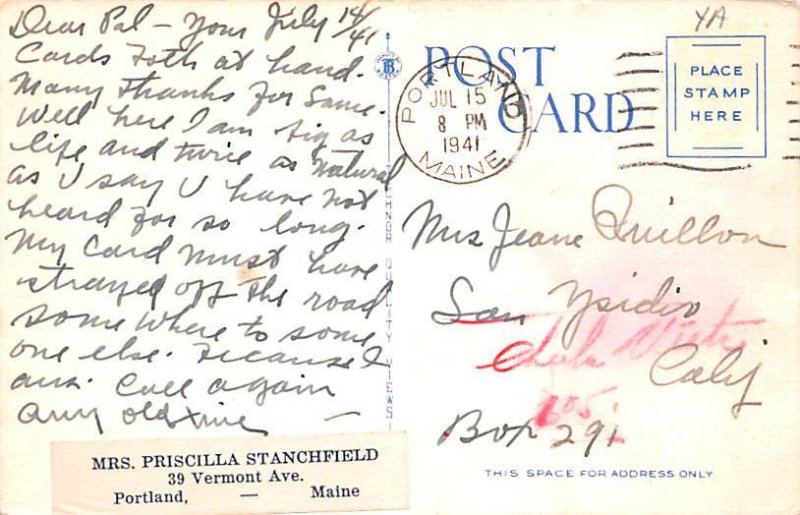 Dear Pal - Your July 14/41
Cards Both at hand.
Many thanks for Same.
Well here I am big as
life and twice as Natural
as U say U have not
heard for so long.
My Card must have
strayed off the road
somewhere to some
one else. Because I
ans. Call again
any old time —
MRS. PRISCILLA STANCHFIELD
39 Vermont Ave.
Portland, — Maine
TICHNOR QUALITY VIEWS
POST
CARD
PORTLAND
JUL 15
8 PM
1941
MAINE
YA
PLACE
STAMP
HERE
Mrs Jeane Quillon
San Ysidro
Chula Vista
Calif
Box 291
THIS SPACE FOR ADDRESS ONLY